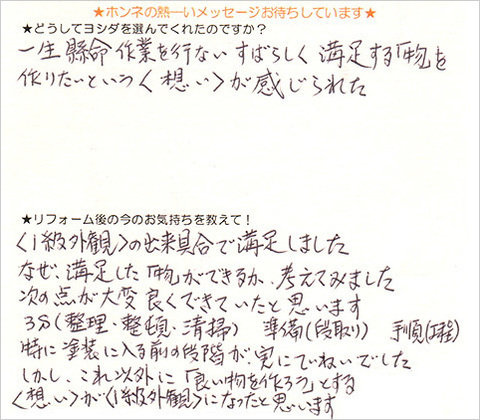 ★ホンネの熱ーいメッセージお待ちしています★
★どうしてヨシダを選んでくれたのですか?
一生懸命作業を行ない すばらしく 満足する「物」を
作りたいという〈想い〉が感じられた
★リフォーム後の今のお気持ちを教えて!
〈1級外観〉の出来具合で満足しました
なぜ、満足した「物」ができるか、考えてみました
次の点が大変良くできていたと思います
3S(整理・整頓・清掃) 準備(段取り) 手順(工程)
特に塗装に入る前の段階が、実にていねいでした
しかし、これ以外に「良い物を作ろう」とする
〈想い〉が〈1級外観〉になったと思います